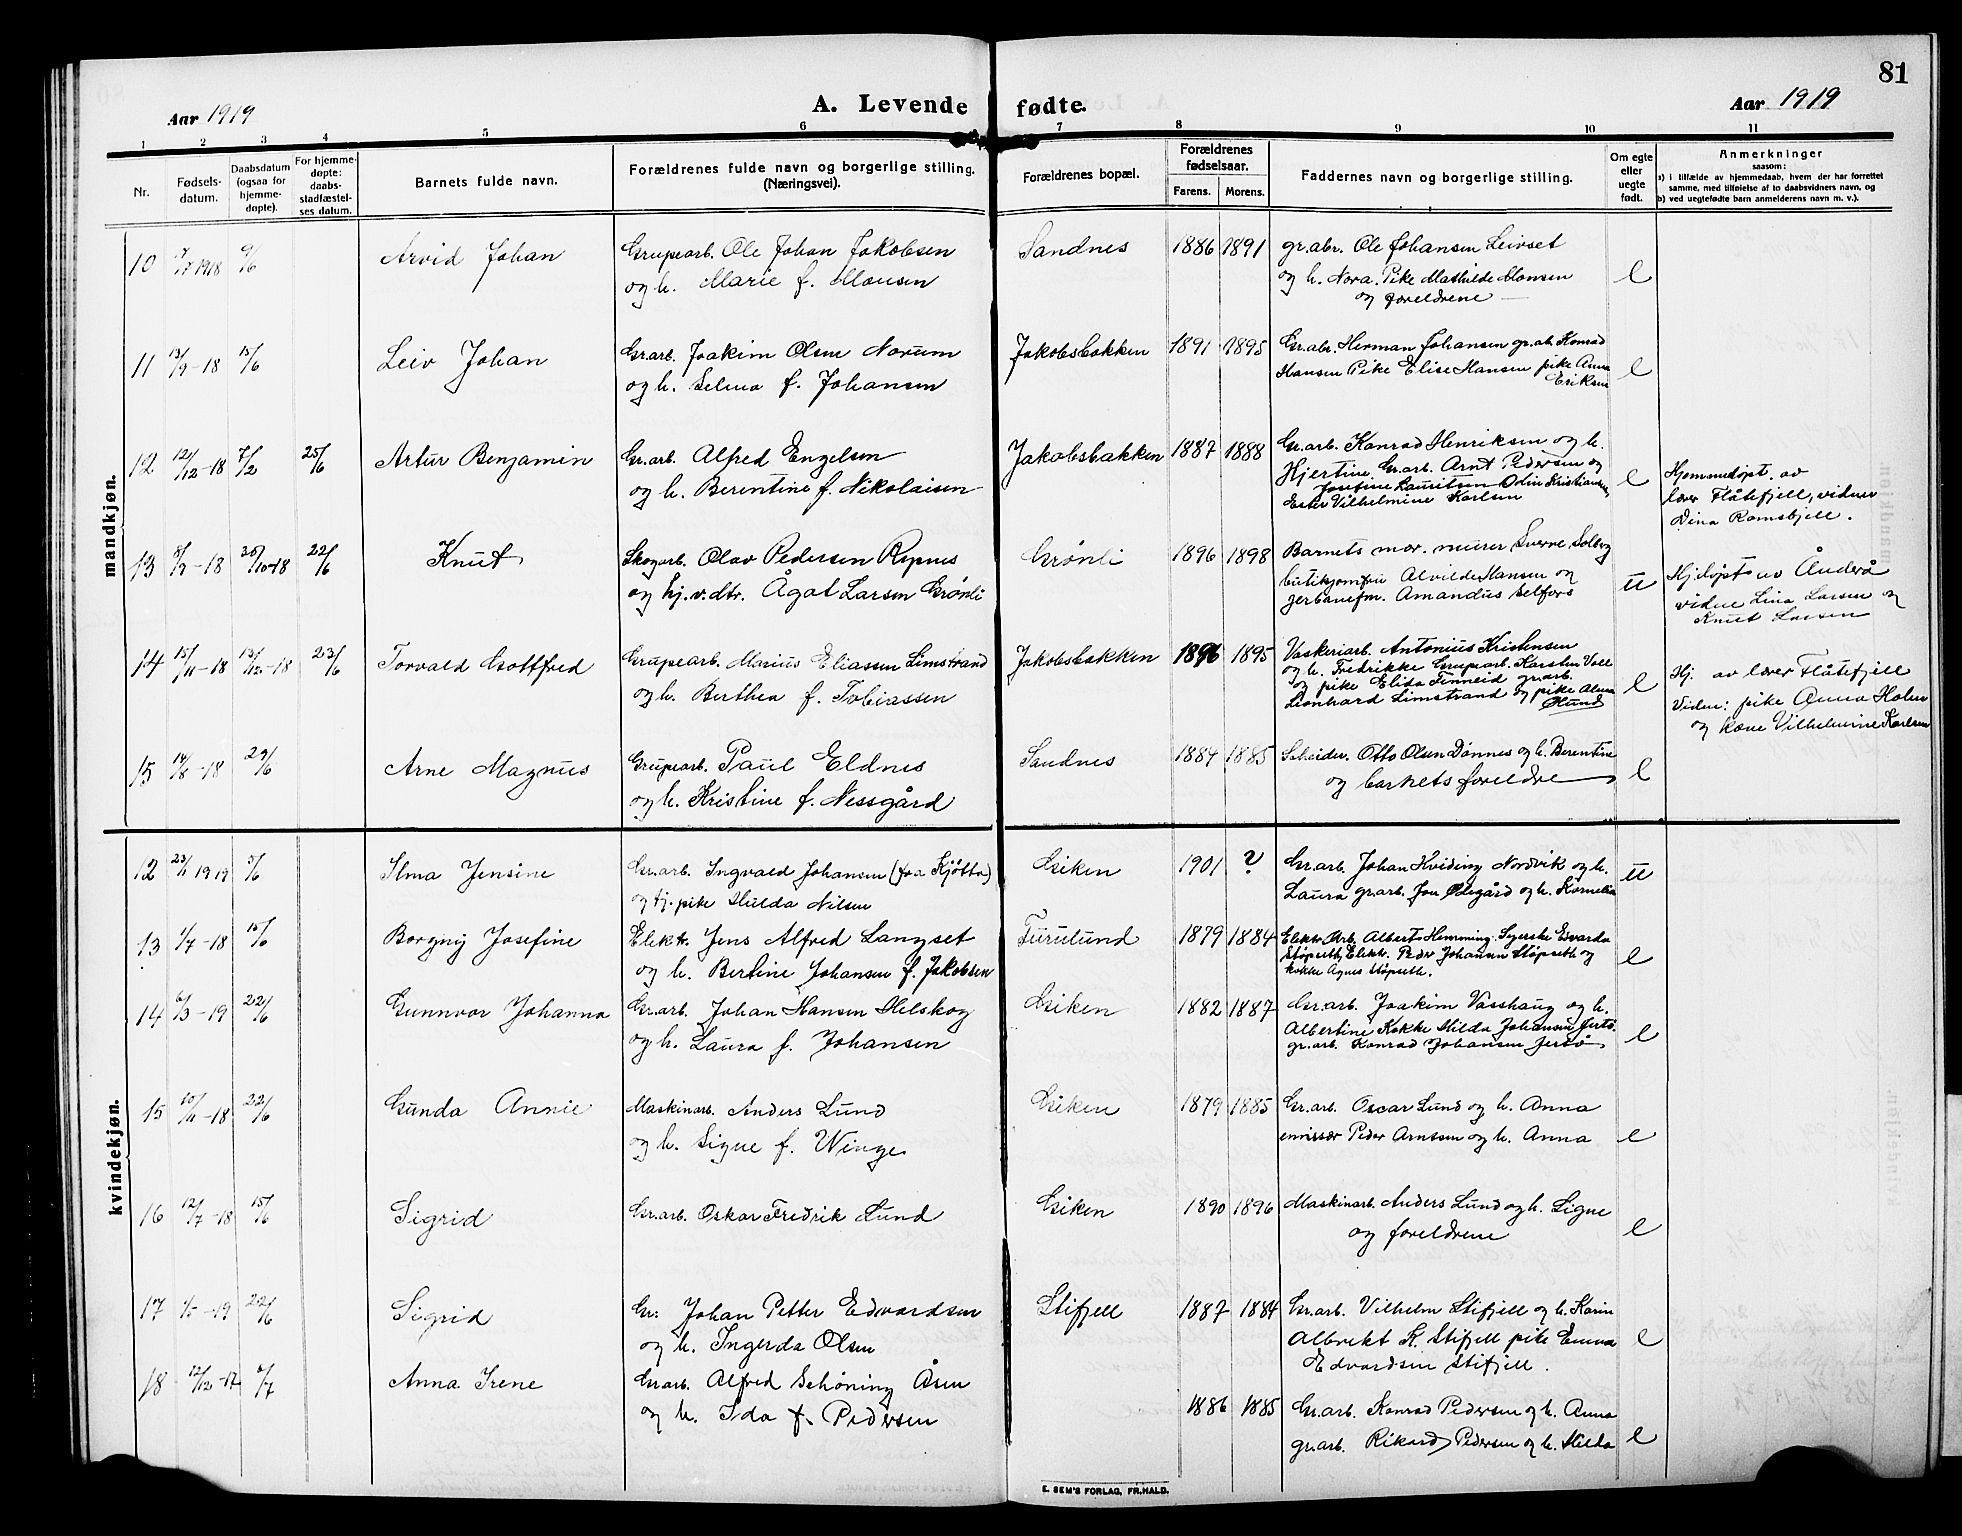 81
Aar 1919 A. Levende fødte. Aar 1919
1 2 3 4 5 6 7 8 9 10 11
Nr. Fødsels-datum. Daabsdatum (ogsaa for hjemme-døpte). For hjemme-døpte: daabs-stadfæstel-ses datum. Barnets fulde navn. Forældrenes fulde navn og borgerlige stilling. (Næringsvei). Forældrenes bopæl. Forældrenes fødselsaar. Farens. Morens. Faddernes navn og borgerlige stilling. Om egte eller uegte født. Anmerkninger saasom: a) i tilfælde av hjemmedaab, hvem der har forrettet samme, med tilføielse af to daabsvidners navn, og b) ved uegtefødte barn anmelderens navn m. v.).
mandkjøn.
10 1918 9/6 Arvid Johan Grupearb. Ole Johan Jakobsen Sandnes 1886 1891 gr.abr. Ole Johansen Leivset
og h. Marie f. Monsen og h. Nora. Pike Mathilde Monsen e
og foreldrene
11 13/9-18 15/6 Leiv Johan Gr.arb. Joakim Olsen Norum Jakobsbakken 1891 1895 Gr.abr. Herman Johansen gr.ab. Konrad
og h. Selma f. Johansen Hansen Pike Elise Hansen pike Anna e
Eriksen
12 12/12-18 7/2 25/6 Artur Benjamin Gr.arb. Alfred Engelsen Jakobsbakken 1887 1888 Gr.arb. Konrad Henriksen og h.
og h. Berentine f. Nikolaisen Hjertine Gr.arb. Arnt Pedersen og e Hjemmedøpt. av
Josefine Lauritsen Odin Kristiansen, lærer Flåtefjell, vidner
Ester Vilhelmine Karlsen Dina Ramsbjell.
13 8/9-18 20/10-18 22/6 Knut Skogarb. Olav Pedersen Ripnes Grønli 1896 1898 Barnets mor. murer Sverre Solberg
og hj.v.dtr. Ågot Larsen Grønli butikjomfru Alvilde Hansen og u Hj.døpt avÅnderå
jerbanefm. Amandus Selfors vidne Lina Larsen og
Knut Larsen
14 15/11-18 13/12-18 23/6 Torvald Gottfred Grupearb. Marius Eliassen Limstrand Jakobsbakken 1896 1895 Vaskeriarb. Antonius Kristensen
og h. Berthea f. Tobiassen og h. Fredrikke Grupearb. Karsten Voll
og pike Elida Finneid gr.arb. e Hj. av lærer Flåtefjell
Leonhard Limstrand og pike Alma Vidner: pike Anna Holm
og kone Vilhelmine Karlsen
15 14/8-18 29/6 Arne Magnus Grupearb. Paul Eldnes Sandnes 1884 1885 Scheider. Otto Olsen Dønnes og h. Berentine
og h. Kristine f. Nessgård og barnets foreldre e
kvindekjøn.
12 23/1 1919 5/6 Ilma Jensine Gr.arb. Ingvald Johansen (fra Kjøtta) Giken 1901 ? Gr.arb. Johan Hviding Nordvik og h. u
og tj. pike Hulda Nilsen Laura gr.arb. Jon Ødegård og h. Kornelia
13 1/7-18 15/6 Borgny Josefine Elektr. Jens Alfred Langset Furulund 1879 1884 Elektr. Arb. Albert Hemming. Syerske Edvarda
og h. Bertine Johansen f. Jakobsen Støpseth, Elektr. Peder Johansen Støpseth og e
kokke Agnes Støpseth.
14 6/3-19 22/6 Gunnvor Johanna Gr.arb. Johan Hansen Helskog Giken 1882 1887 Gr.arb. Joakim Vasshaug og h.
og h. Laura f. Johansen Albertine Kokke Hilda Johansen Jertø. e
gr.arb. Konrad Johansen Jertø
15 10/11-18 22/6 Gunda Annie Maskinarb. Anders Lund Giken 1879 1885 Gr.arb. Oscar Lund og h. Anna
og h. Signe f. Winge emissær Peder Arntsen og h. Anna e
16 12/7-18 15/6 Sigrid Gr.arb. Oskar Fredrik Lund Giken 1890 1896 Maskinarb. Anders Lund og h. Signe
og foreldrene e
17 1/5-19 22/6 Sigrid Gr. Johan Petter Edvardsen Stifjell 1887 1884 Gr.arb. Vilhelm Stifjell og h. Karin
og h. Ingerda Olsen Albrekt K. Stifjell pike Emma e
Edvardsen Stifjell.
18 12/12-17 6/7 Anna Irene Gr.arb. Alfred Schöning Åsen 1886 1885 Gr.arb. Konrad Pedersen og h. Anna
og h. Ida f. Pedersen gr.arb. Rikard Pedersen og h. Hilda e
E. SEM'S FORLAG, FR.HALD.